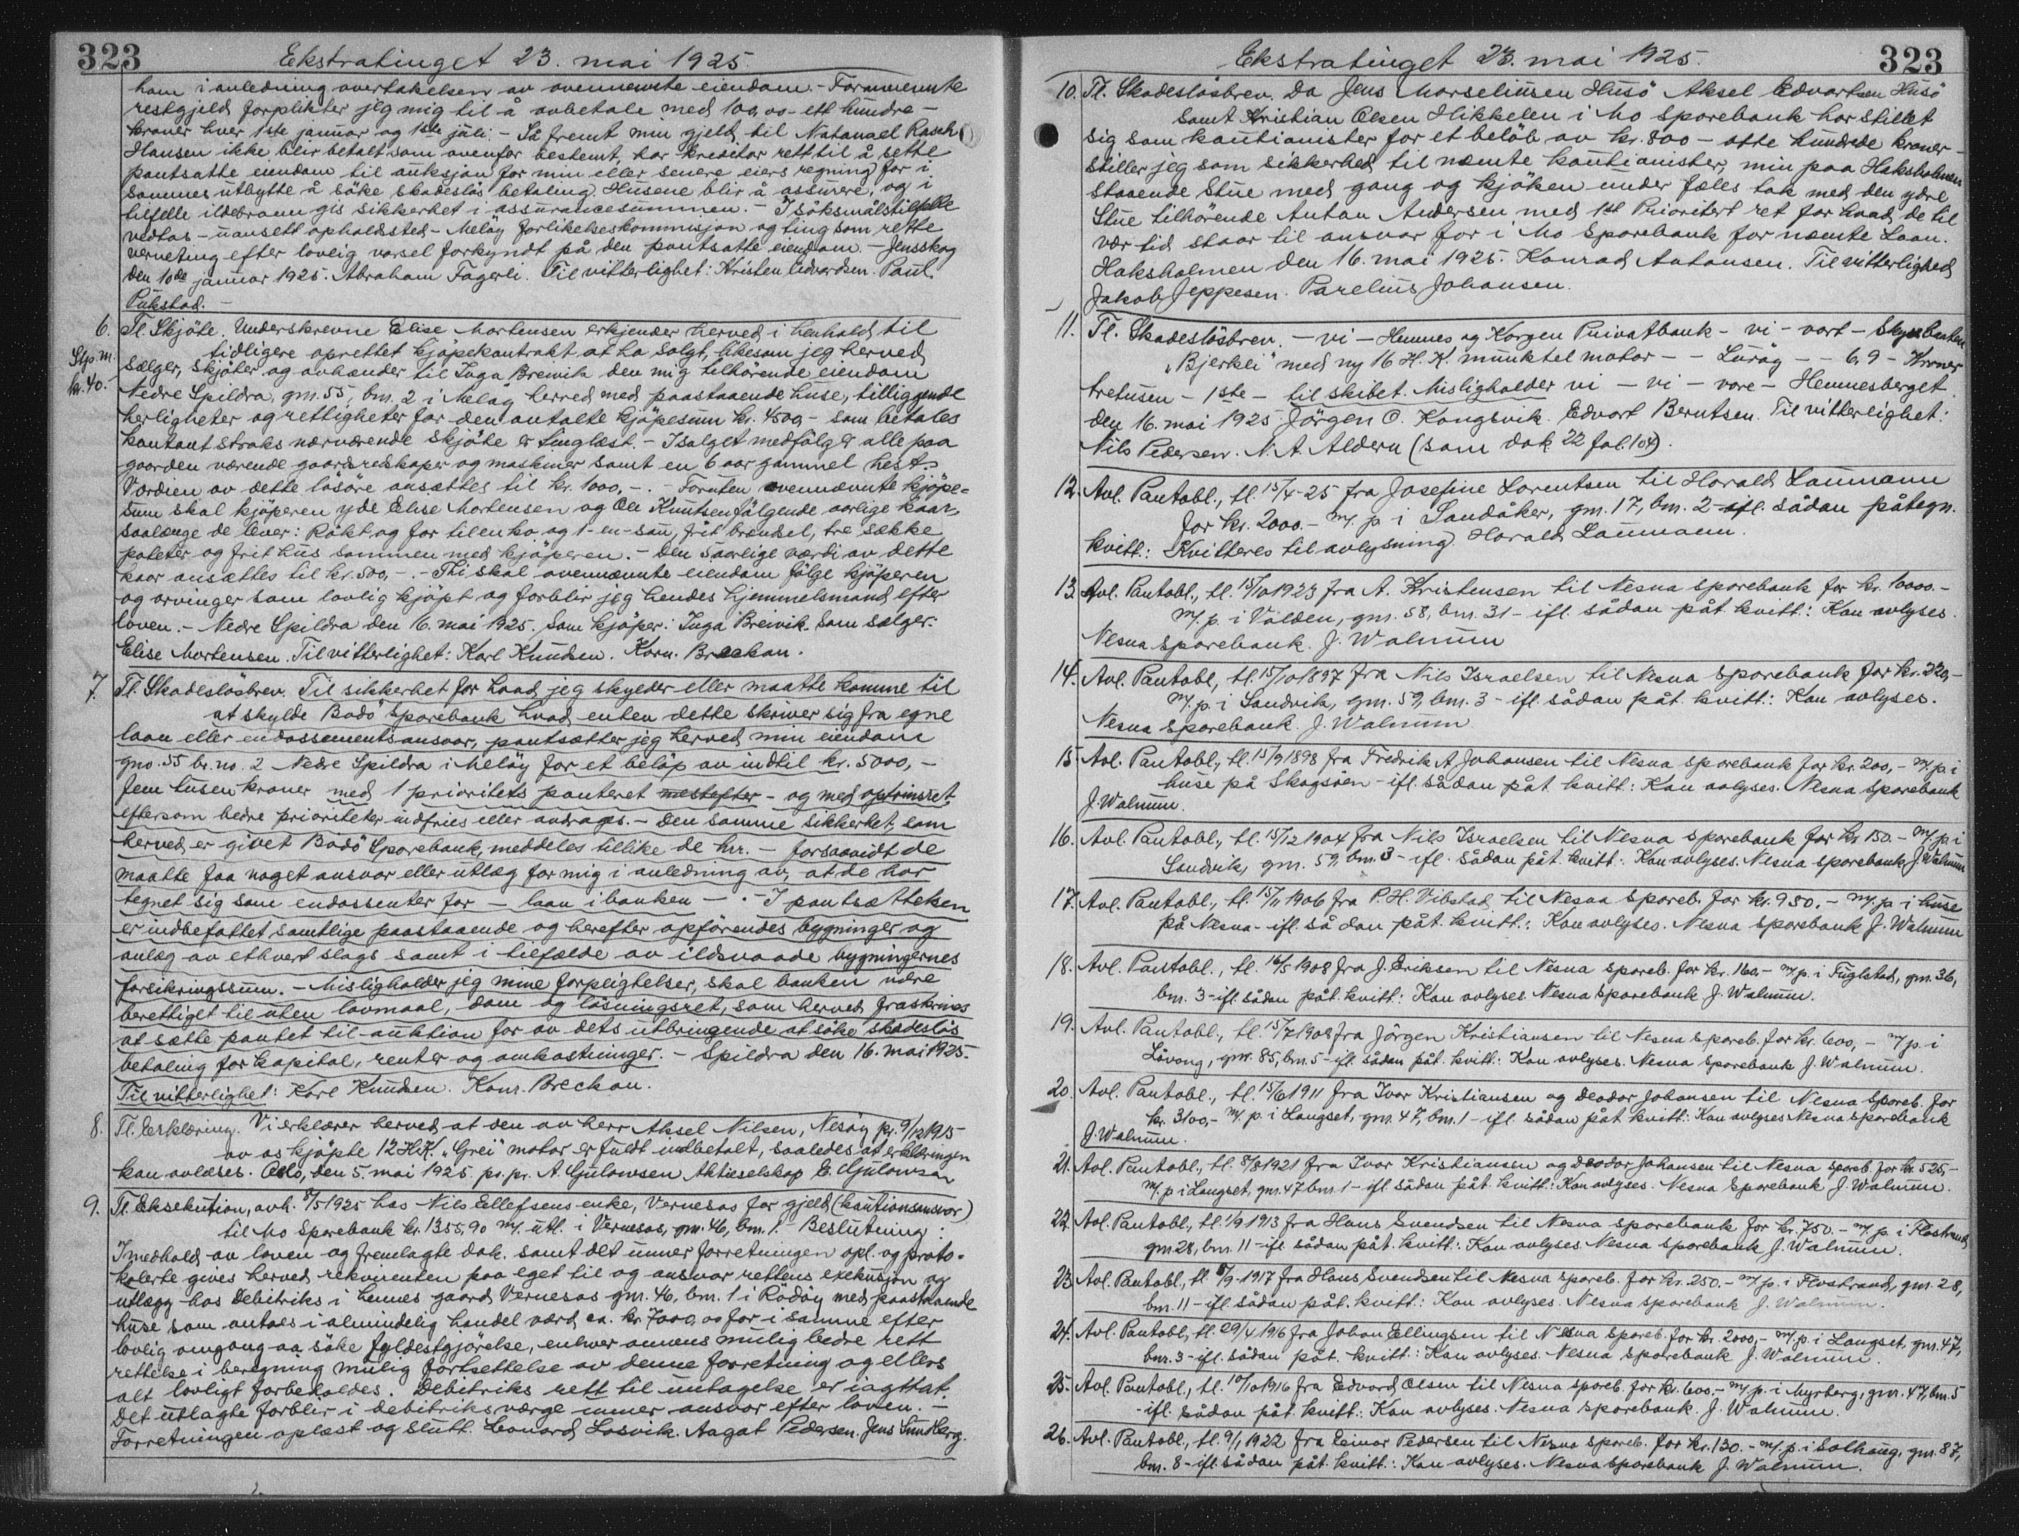 323
Ekstratinget 23. mai 1925.
ham i anledning overtakelsen av ovennevnte eiendom. - Fornevnte
restgjeld forplikter jeg mig til å avbetale med 100,00 - ett hundre -
kroner hver 1ste januar og 1ste juli. - Så fremt min gjeld til Natanael Rasch
Hansen ikke blir betalt som ovenfor bestemt, har kreditor rett til å sette
pantsatte eiendom til auksjon for min eller senere eiers regning for i
sammes utbytte å söke skadeslös betaling. Husene blir å assurere, og i
tilfelle ildebrann gis sikkerhet i assurancesummen. - I söksmålstilfelle
vedtas - uansett opholdssted - Melöy forlikelseskommisjon og ting som rette
verneting efter lovlig varsel forkyndt på den pantsatte eiendom. - Jensskog
den 10de januar 1925. Abraham Fagerli. Til vitterlighet: Kristen Edvardsen. Paul
Pukstad. -
6. Tl. Skjöte. Underskrevne Elise Mortensen erkjender herved i henhold til
Stp. m. kr. 40.-
tidligere oprettet kjöpekontrakt at ha solgt, likesom jeg herved
sælger, skjöter og avhænder til Inga Breivik den mig tilhörende eiendom
Nedre Spildra, gm. 55, bm. 2 i Melöy herred med paastaaende huse, tilliggende
herligheter og rettigheter for den avtalte kjöpesum kr. 4500,- som betales
kontant straks nærværende skjöte er tinglæst. - I salget medfölger alle paa
gaarden værende gaardsredskaper og maskiner samt en 6 aar gammel hest.
Værdien av dette lösöre ansættes til kr. 1000,-. - Foruten ovennævnte kjöpe-
sum skal kjöperen yde Elise Mortensen og Ole Knutsen fölgende aarlige kaar,
saalænge de lever: Rökt og for til en ko og 1 - en - sau, frit brendsel, tre sække
poteter og frit hus sammen med kjöperen. - Den aarlige værdi av dette
kaar ansættes til kr. 500,-. - Thi skal ovennævnte eiendom fölge kjöperen
og arvinger som lovlig kjöpt og forblir jeg hendes hjemmelsmand efter
loven. - Nedre Spildra den 16. mai 1925. Som kjöper: Inga Breivik. Som sælger:
Elise Mortensen. Til vitterlighet: Karl Knudsen. Korn. Brechan.
7. Tl. Skadeslösbrev. Til sikkerhet for hvad jeg skylder eller maatte komme til
at skylde Bodö Sparebank hvad enten dette skriver sig fra egne
laan eller endossementsansvar, pantsætter jeg herved min eiendom
gno. 55 br. no. 2 Nedre Spildra i Melöy for et belöp av indtil kr. 5000,-
fem tusen kroner med 1 prioritets panteret næstefter - og med optrinsret
eftersom bedre prioriteter indfries eller avdrages. - Den samme sikkerhet, som
herved er givet Bodö Sparebank, meddeles tillike de hrr. - forsaavidt de
maatte faa noget ansvar eller utlæg for mig i anledning av, at de har
tegnet sig som endossenter for - laan i banken - . - I pantsættelsen
er indbefattet samtlige paastaaende og herefter opförendes bygninger og
anlæg av ethvert slags samt i tilfælde av ildsvaade bygningernes
forsikringssum. - Misligholder jeg mine forpligtelser, skal banken være
berettiget til uten lovmaal, dom og lösningsret, som herved fraskrives
at sætte pantet til auktion for av dets utbringende at söke skadeslös
betaling for kapital, renter og omkostninger. - Spildra den 16. mai 1925.
Til vitterlighet: Karl Knudsen. Korn. Brechan.
8. Tl. Erklæring. Vi erklærer herved at den av herr Aksel Nilsen, Nesöy pr. 9/12 1915
av os kjöpte 12 H.K. "Grei" motor er fuldt indbetalt, saaledes at erklæringen
kan avlæses. Oslo, den 5. mai 1925. pr. pr. A. Gulowsen Aktieselskap E. Gulowsen
9. Tl. Eksekution, avh. 8/5 1925 hos Nils Ellefsens enke, Vernesos for gjeld (kautionsansvar)
til Mo Sparebank kr. 1355,90 m/. utl. i Vernesos, gm. 46, bm. 1. - Beslutning:
I medhold av loven og fremlagte dok. samt det under forretningen opl. og proto-
kolerte gives herved rekvirenten paa eget til og ansvar rettens exekusjon og
utlægg hos Debitriks i hennes gaard Vernesos gm. 46, bm. 1 i Rödöy med paastaaende
huse som antaes i almindelig handel værd ca. kr. 7000,00 for i samme efter
lovlig omgang aa söke fyldestgjörelse, enhver annens mulig bedre rett
rettelse i beregning mulig fortsettelse av denne forretning og ellers
alt lovligt forbeholdes. Debitriks rett til untagelse er iagttat.
Det utlagte forblir i debitriks værge under ansvar efter loven. -
Forretningen oplæst og slutt. Leonard Losvik. Aagot Pedersen. Jens Sundberg.
323
Ekstratinget 23. mai 1925.
10. Tl. Skadeslösbrev. Da Jens Marseliusen Husö Aksel Edvartsen Husö
samt Kristian Olsen Hikkelen i Mo Sparebank har stillet
sig som kautionister for et belöb av kr. 800 - otte hundrede kroner -
stiller jeg som sikkerhed til nævnte kautionister, min paa Haksholmen
staaende Stue med gang og kjöken under fæles tak med den ydre
Stue tilhörende Anton Andersen med 1ste Prioritert ret for hvad de til
vær tid staar til ansvar for i Mo Sparebank for nævnte Laan.
Haksholmen den 16. mai 1925. Konrad Antonsen. Til vitterlighed
Jakob Jeppesen. Parelius Johansen.
11. Tl. Skadeslösbrev. - vi - Hemnes og Korgen Privatbank - vi - vort - Skyssbaaten
"Bjerkli" med ny 16 H.K. munktel motor - - Luröy - - 6,9 - Kroner
tretusen - 1ste - til skibet. Misligholder vi - vi - vore - Hemnesberget
den 16. mai 1925 Jörgen O. Kongsvik. Edvart Berntsen. Til vitterlighet:
Nils Pedersen. N. A. Aldern (som dok 22 fol. 104).
12. Avl. Pantobl., tl. 15/4-25 fra Josefine Lorentsen til Harald Laumann
for kr. 2000.- m/. p. i Sandåker, gm. 17, bm. 2 - ifl. sådan påtegn.
kvitt.: Kvitteres til avlysning. Harald Laumann.
13. Avl. Pantobl., tl. 15/10 1923 fra A. Kristensen til Nesna Sparebank for kr. 6000.-
m/. p. i Valden, gm. 58, bm. 31 - ifl. sådan påt. kvitt.: Kan avlyses.
Nesna Sparebank. J. Walnum
14. Avl. Pantobl., tl. 15/10 1897 fra Nils Israelsen til Nesna Sparebank for kr. 220,-
m/. p. i Sandvik, gm. 59, bm. 3 - ifl. sådan påt. kvitt.: Kan avlyses.
Nesna Sparebank. J. Walnum
15. Avl. Pantobl., tl. 15/9 1898 fra Fredrik A. Johansen til Nesna Sparebank for kr. 200,- m/. p. i
huse på Skogsöen - ifl. sådan påt. kvitt.: Kan avlyses. Nesna Sparebank
J. Walnum.
16. Avl. Pantobl., tl. 15/12 1904 fra Nils Israelsen til Nesna Sparebank for kr. 150.- m/. p. i
Sandvik, gm. 59, bm. 3 - ifl. sådan påt. kvitt.: Kan avlyses. Nesna Sparebank. J. Walnum
17. Avl. Pantobl., tl. 15/11 1906 fra P. H. Vibstad til Nesna Spareb. for kr. 950.- m/. p. i huse
på Nesna - ifl. sådan påt. kvitt.: Kan avlyses. Nesna Sparebank J. Walnum
18. Avl. Pantobl., tl. 16/5 1908 fra J. Eriksen til Nesna Spareb. for kr. 160,- m/. p. i Fuglstad, gm. 36,
bm. 3 - ifl. sådan påt. kvitt.: Kan avlyses Nesna Sparebank J. Walnum.
19. Avl. Pantobl., tl. 15/7 1908 fra Jörgen Kristiansen til Nesna Spareb. for kr. 600,- m/. p. i
Lövong, gm. 85, bm. 5 - ifl. sådan påt. kvitt.: Kan avlyses. Nesna Sparebank J. Walnum.
20. Avl. Pantobl., tl. 15/6 1911 fra Ivar Kristiansen og Deodor Johansen til Nesna Spareb. for
kr. 3100,- m/. p. i Langset, gm. 47, bm. 1 - ifl. sådan påt. kvitt.: Kan avlyses Nesna Sparebank
J. Walnum.
21. Avl. Pantobl., tl. 8/8 1921 fra Ivar Kristiansen og Deodor Johansen til Nesna Spareb. for kr. 525,-
m/. p. i Langset, gm. 47 bm. 1 - ifl. sådan påt. kvitt.: Kan avlyses. Nesna Sparebank J. Walnum.
22. Avl. Pantobl., tl. 1/9 1913 fra Hans Svendsen til Nesna Sparebank for kr. 750.- m/. p. i Flostrand,
gm. 28, bm. 11 - ifl. sådan påt. kvitt.: Kan avlyses. Nesna Sparebank J. Walnum.
23. Avl. Pantobl., tl. 8/9-1917 fra Hans Svendsen til Nesna Spareb. for kr. 250.- m/. p. i Flostrand, gm. 28,
bm. 11 - ifl. sådan påt. kvitt.: Kan avlyses. Nesna Sparebank J. Walnum.
24. Avl. Pantobl., tl. 29/4 1916 fra Johan Ellingsen til Nesna Spareb. for kr. 2000,- m/. p. i Langset, gm. 47,
bm. 3 - ifl. sådan påt. kvitt.: Kan avlyses. Nesna Sparebank J. Walnum.
25. Avl. Pantobl., tl. 10/10 1916 fra Edvard Olsen til Nesna Spareb. for kr. 600,- m/. p. i Myrberg, gm. 47, bm. 5
- ifl. sådan påt. kvitt.: Kan avlyses. Nesna Sparebank. J. Walnum.
26. Avl. Pantobl., tl. 9/1 1922 fra Einar Pedersen til Nesna Spareb. for kr. 130.- m/. p. i Solhaug, gm. 87,
bm. 8 - ifl. sådan påt. kvitt.: Kan avlyses. Nesna Sparebank J. Walnum.